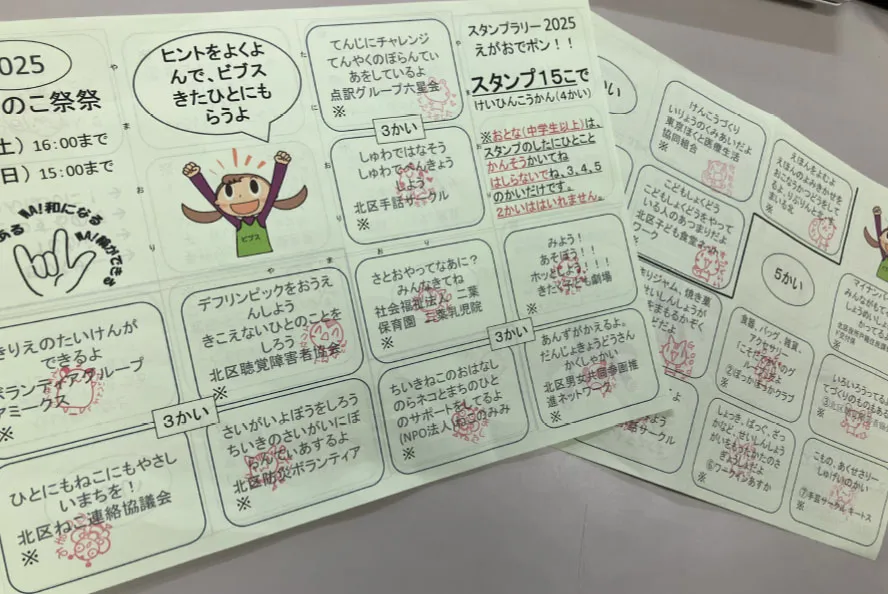 2025
のこ祭祭
土) 16:00まで
日) 15:00まで
WA!和になる
ヒントをよくよ
んで、ビブス
きたひとにも
らうよ
ビブス
てんじにチャレンジ
てんやくのぼらんてぃ
あをしているよ
点訳グループ六星会
※
3かい
しゅわではなそう
しゅわでべんきょう
しよう
北区手話サークル
※
スタンプラリー 2025
えがおでポン!!
スタンプ15こで
けいひんこうかん(4かい)
※おとな(中学生以上)は、
スタンプのしたにひとこと
かんそうかいてね
はしらないでね、3、4、5
のかいだけです。
2かいははいれません。
きりえのたいけんが
できるよ
ボランティアグループ
アミークス
※
デフリンピックをおうえ
んしよう
きこえないひとのことを
しろう
北区聴覚障害者協会
※
さとおやってなあに?
みんなきてね
社会福祉法人 二葉
保育園 二葉乳児院
※
みよう!
あそぼう!!
ホッとしよう!!!
きたく子ども劇場
※
3かい
3かい
ひとにもねこにもやさし
いまちを!
北区ねこ連絡協議会
※
さいがいよぼうをしろう
ちいきのさいがいにぼ
らんてぃあするよ
北区防災ボランティア
※
ちいきねこのおはなし
のらネコとまちのひと
のサポートをしてるよ
(NPO法人)ねこのみみ
※
あんずがかえるよ。
だんじょきょうどうさん
かくしゃかい
北区男女共同参画推
進ネットワーク
※
かい
けんこうづくり
いりょうのくみあいだよ
東京ほくと医療生活
協同組合
※
えほんをよむよ
えほんのよみきかせを
おこなうかつどうをして
るよ
※
こどもしょくどう
こどもしょくどうをやって
いる人のあつまりだよ
北区子ども食堂ネット
ワーク
※
5かい
りジャム、焼き菓
せいしんしょうが
をまもるかぞく
だよ
食器、バッグ、雑貨、
アクセサリー
②ぽっかぽっかクラブ
※
マイナンバ
みんながもて
しょうめいし
いろいろうって
てづくりのものもある
※
サークル
しょっき、ばっぐ、ざっ
かなど、せいしんしょう
がいをもったかたのさ
ぎょうしょだよ
⑥ワークインあすか
※
こもの、あくせさりー
しゅげいのかい
⑦手芸サークル キートス
※